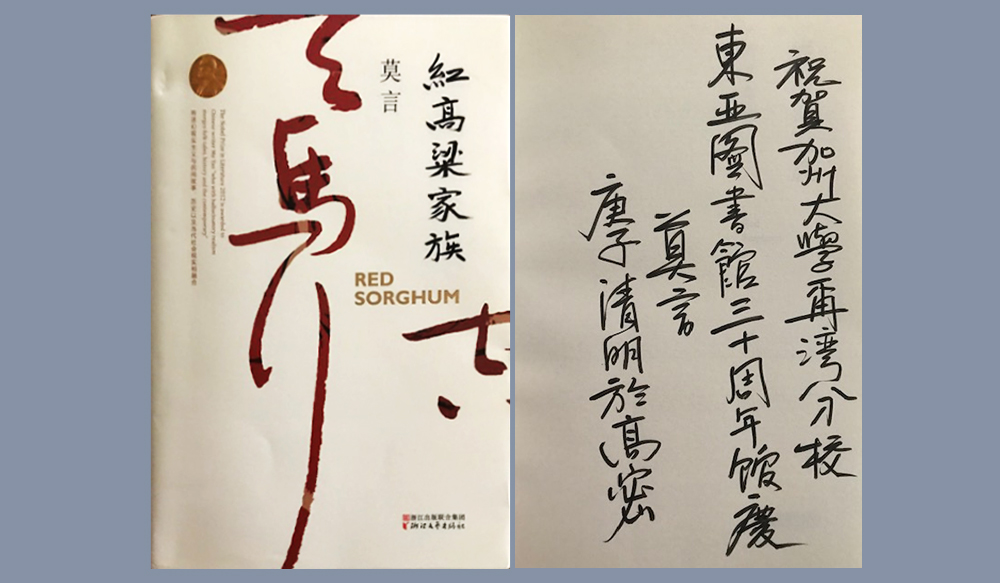 紅高粱家族
莫言
RED
SORGHUM
馬
The Nobel Prize in Literature 2012 is awarded to
Chinese writer Mo Yan "who with hallucinatory realism
merges folk tales, history and the contemporary"
浙江出版联合集团
浙江文艺出版社
祝賀加州大學再湾分校
東亚图書館三十周年館慶
莫言
庚子清明於高密